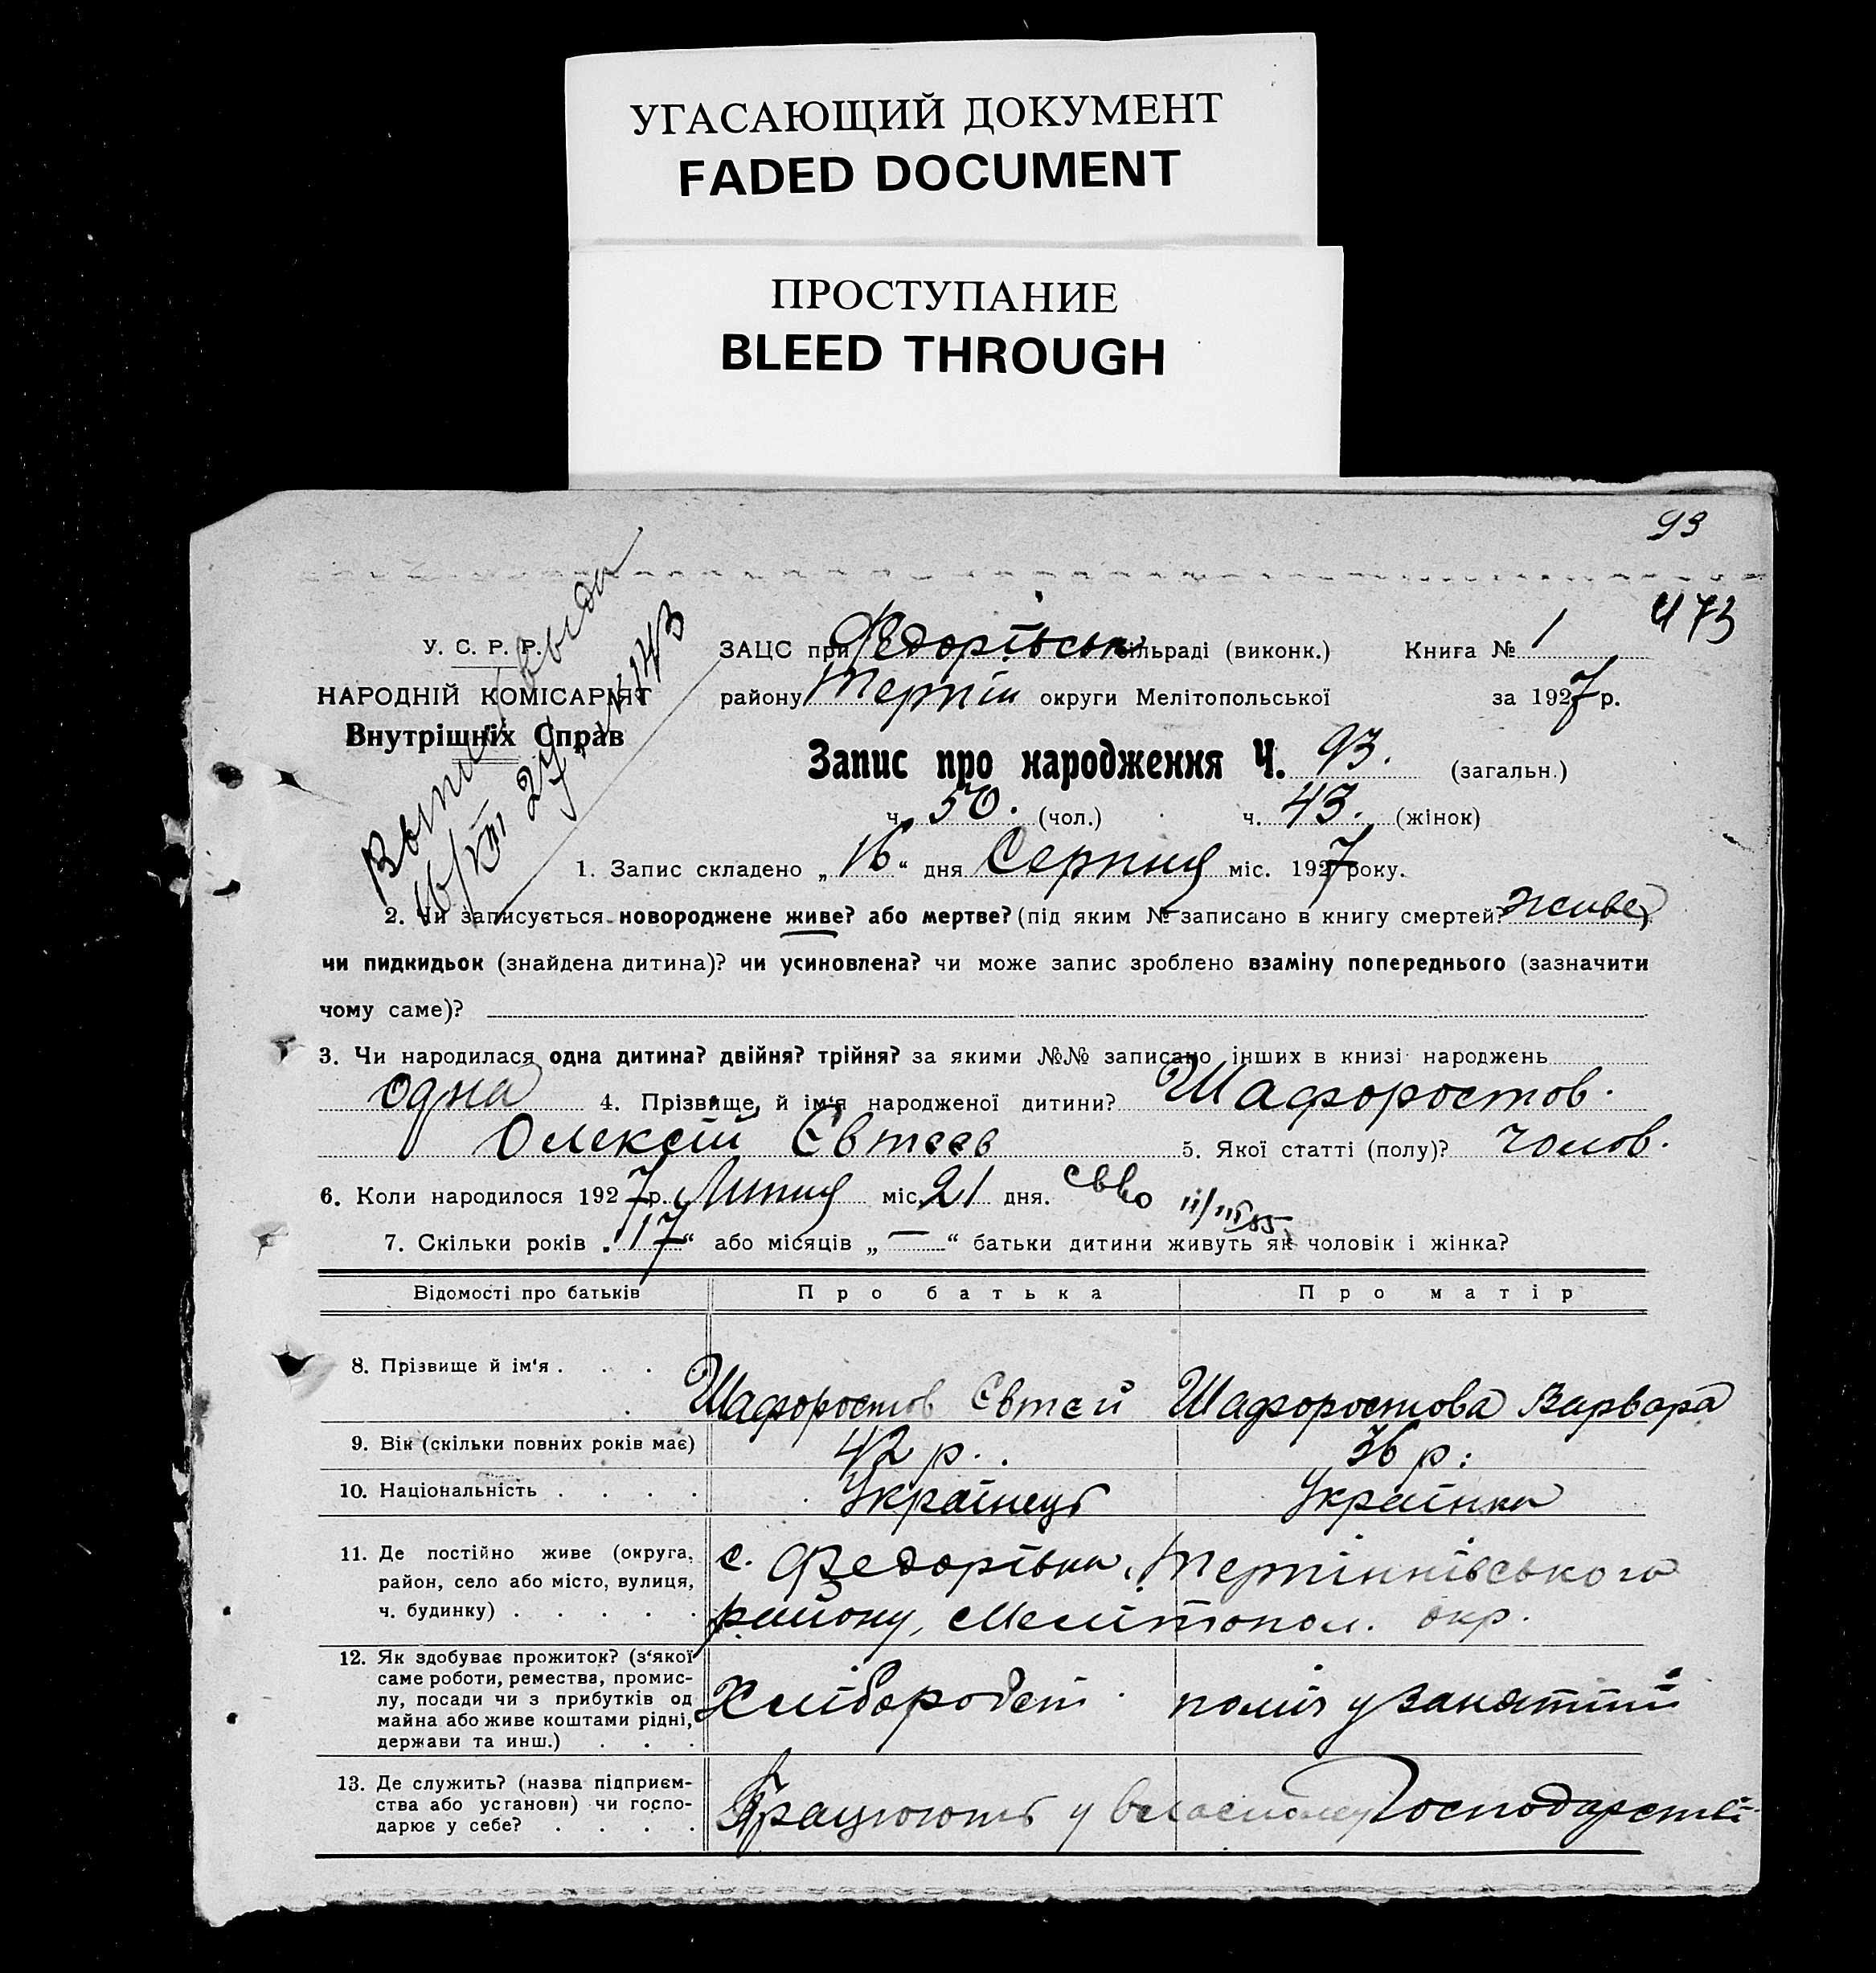 УГАСАЮЩИЙ ДОКУМЕНТ
FADED DOCUMENT
ПРОСТУПАНИЕ
BLEED THROUGH
93
473
У. С. Р. Р.
НАРОДНІЙ КОМІСАРІЯТ
Внутрішніх Справ
16/VIII 27 № 143
ЗАЦС при Федорівськ сільраді (виконк.) Книга № 1
району Терпін округи Мелітопольської за 1927 р.
Запис про народження Ч. 93. (загальн.)
ч. 50. (чол.) ч. 43. (жінок)
1. Запис складено „16“ дня Серпня міс. 1927 року.
2. Чи записується новороджене живе? або мертве? (під яким № записано в книгу смертей? живе)
чи пидкидьок (знайдена дитина)? чи усиновлена? чи може запис зроблено взаміну попереднього (зазначити
чому саме)?
3. Чи народилася одна дитина? двійня? трійня? за якими №№ записано інших в книзі народжень
одна 4. Прізвище й ім'я народженої дитини? Шафоростов.
Олексій Євтеєв 5. Якої статті (полу)? чолов.
6. Коли народилося 1927 р. Липня міс. 21 дня.
7. Скільки років „17“ або місяців „—“ батьки дитини живуть як чоловік і жінка?
Відомості про батьків Про батька Про матір
8. Прізвище й ім'я . . . . Шафоростов Євтей Шафоростова Варвара
9. Вік (скільки повних років має) 42 р. 36 р.
10. Національність . . . . Українець Українка
11. Де постійно живе (округа,
район, село або місто, вулиця,
ч. будинку) . . . . .
с. Федорівка, Терпіннівського
району, Мелітопол. окр.
12. Як здобуває прожиток? (з'якої
саме роботи, ремества, промис-
лу, посади чи з прибутків од
майна або живе коштами рідні,
держави та инш.) . . .
Хлібороб поміч у занятті
13. Де служить? (назва підприєм-
ства або установи) чи госпо-
дарює у себе? . . . .
Працюють у власному Господарстві